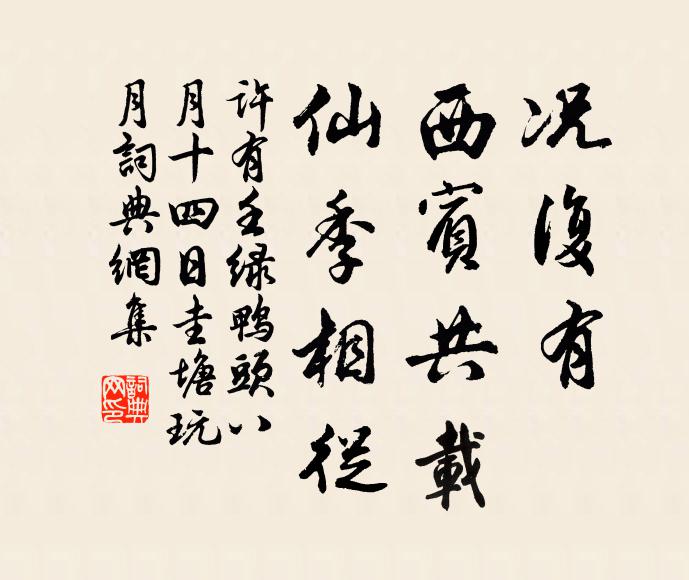 况復有
西賓共載
仙季相從
許有壬緑鴨頭八
月十四日圭塘玩
月詞典網集
詞典网印